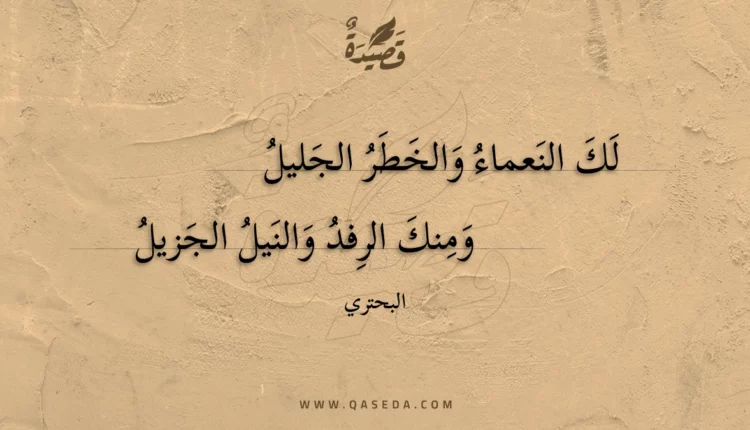 قَصيدَةٌ
لَكَ النَعماءُ وَالخَطَرُ الجَليلُ
وَمِنكَ الرِفدُ وَالنَيلُ الجَزيلُ
البحتري
WWW.QASEDA.COM